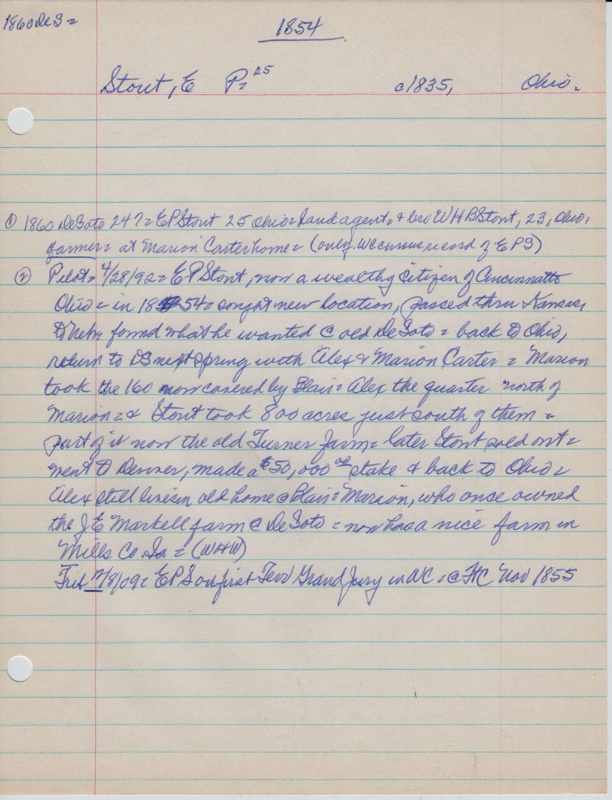 1860 De S =
1854
Stout, E P = 25 c1835, Ohio.
① 1860 De Soto 247 = E P Stout 25 Ohio = Land agent = & bro W H B Stout, 23, Ohio,
farmer = at Marion Carter home = (only W C census record of E P S)
② Pilot = 4/28/92 = E P Stont, now a wealthy citizen of Cincinnatti
Ohio = in 1854 = sought new location, passed thru Kansas,
& Nebr found what he wanted @ old De Soto = back to Ohio,
return to DS next spring with Alex & Marion Carter = Marion
took the 160 now covered by Blair = Alex the quarter north of
Marion = & Stout took 800 acres just south of them &
part of it now the old Turner farm = later Stout sold out =
went to Denver, made a $50,000 stake & back to Ohio =
Alex still lives in old home @ Blair = Marion, who once owned
the J E Markell farm @ De Soto = now has a nice farm in
Mills Co Ia = (WHW)
Trib /8/09 = E P S on first Terr Grand Jury in WC = @ FtC Nov 1855